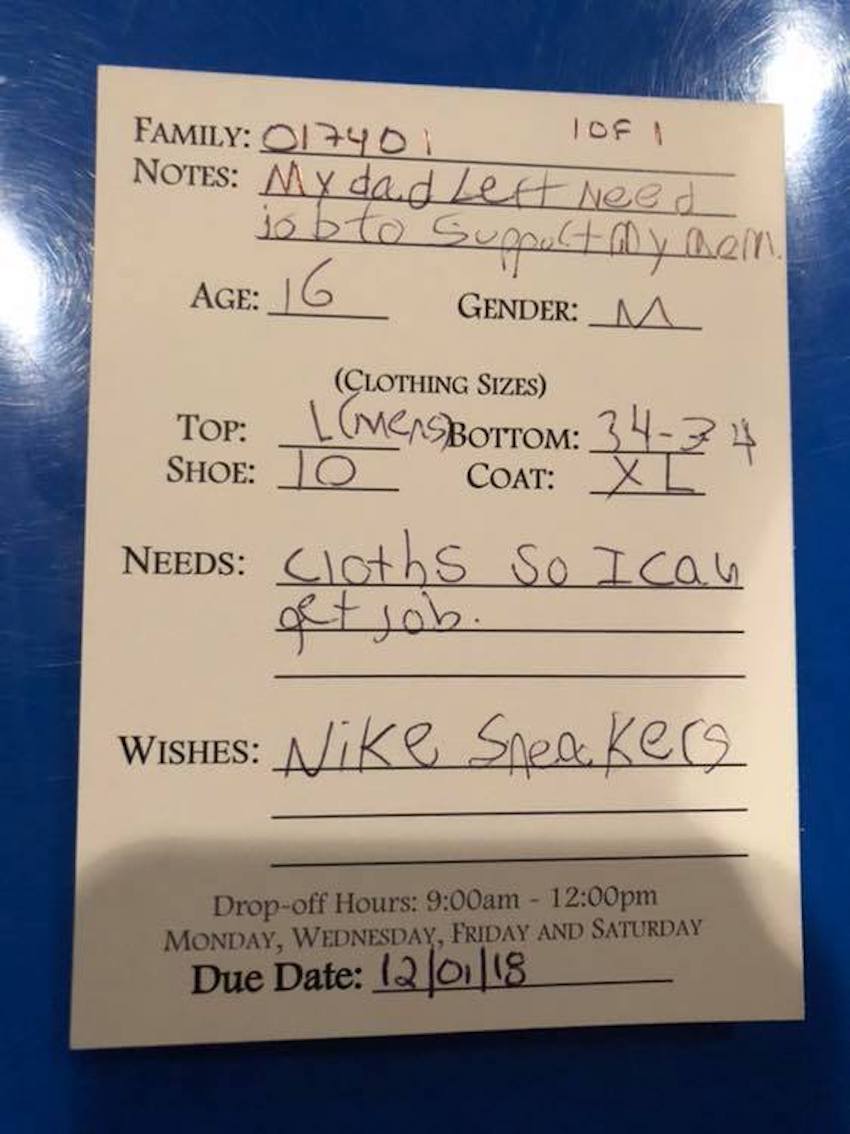 FAMILY: 017401 1 OF 1
NOTES: My dad Left Need
job to Support My mom.
AGE: 16 GENDER: M
(CLOTHING SIZES)
TOP: L (Mens) BOTTOM: 34-34
SHOE: 10 COAT: XL
NEEDS: cloths so I can
get job.
WISHES: Nike Sneakers
Drop-off Hours: 9:00am - 12:00pm
MONDAY, WEDNESDAY, FRIDAY AND SATURDAY
Due Date: 12/01/18